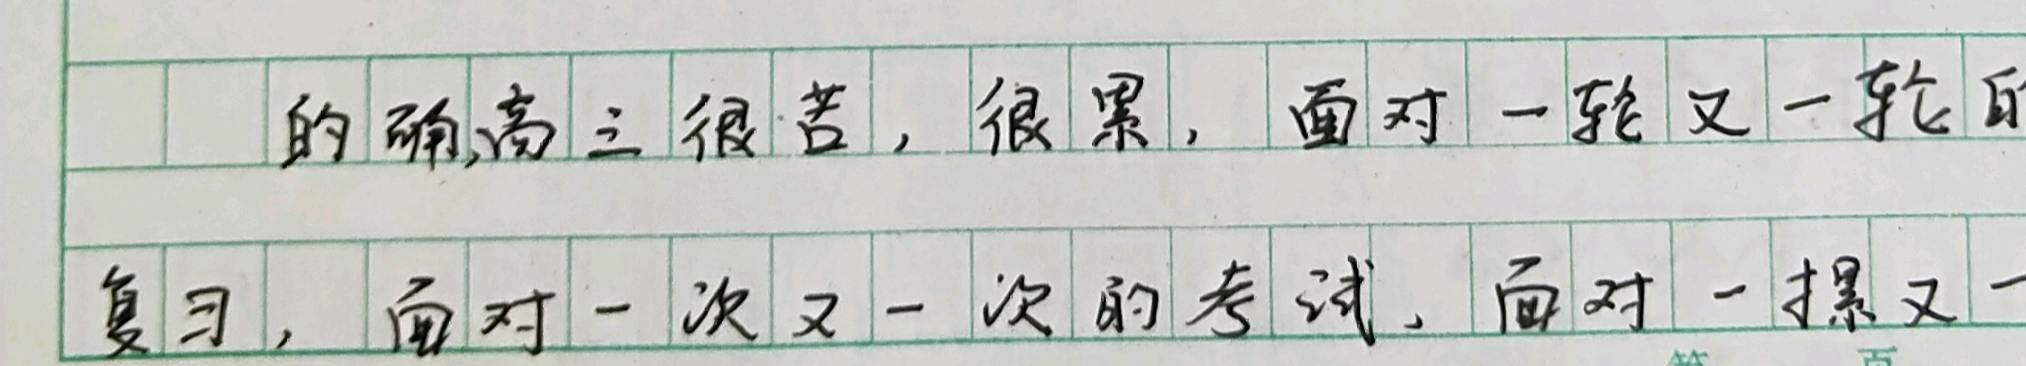 的确,高三很苦，很累，面对一轮又一轮的
复习，面对一次又一次的考试，面对一摞又一